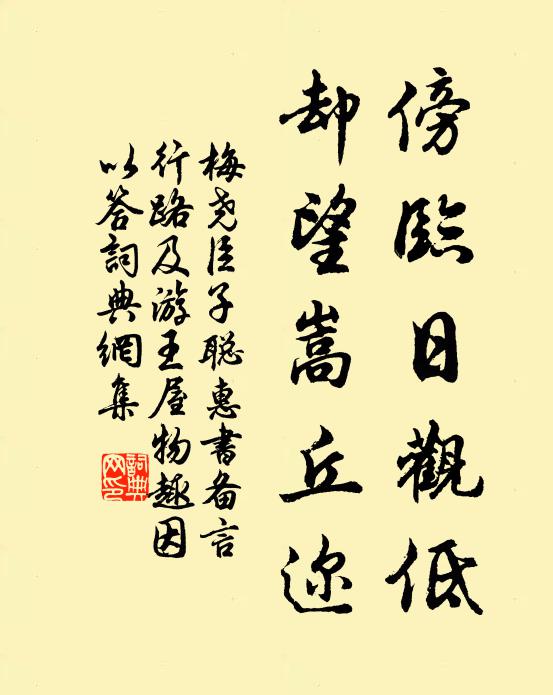 傍臨日觀低
却望嵩丘迩
梅尧臣子聪惠書备言
行路及游王屋物趣因
以答詞典網集
詞典
网印